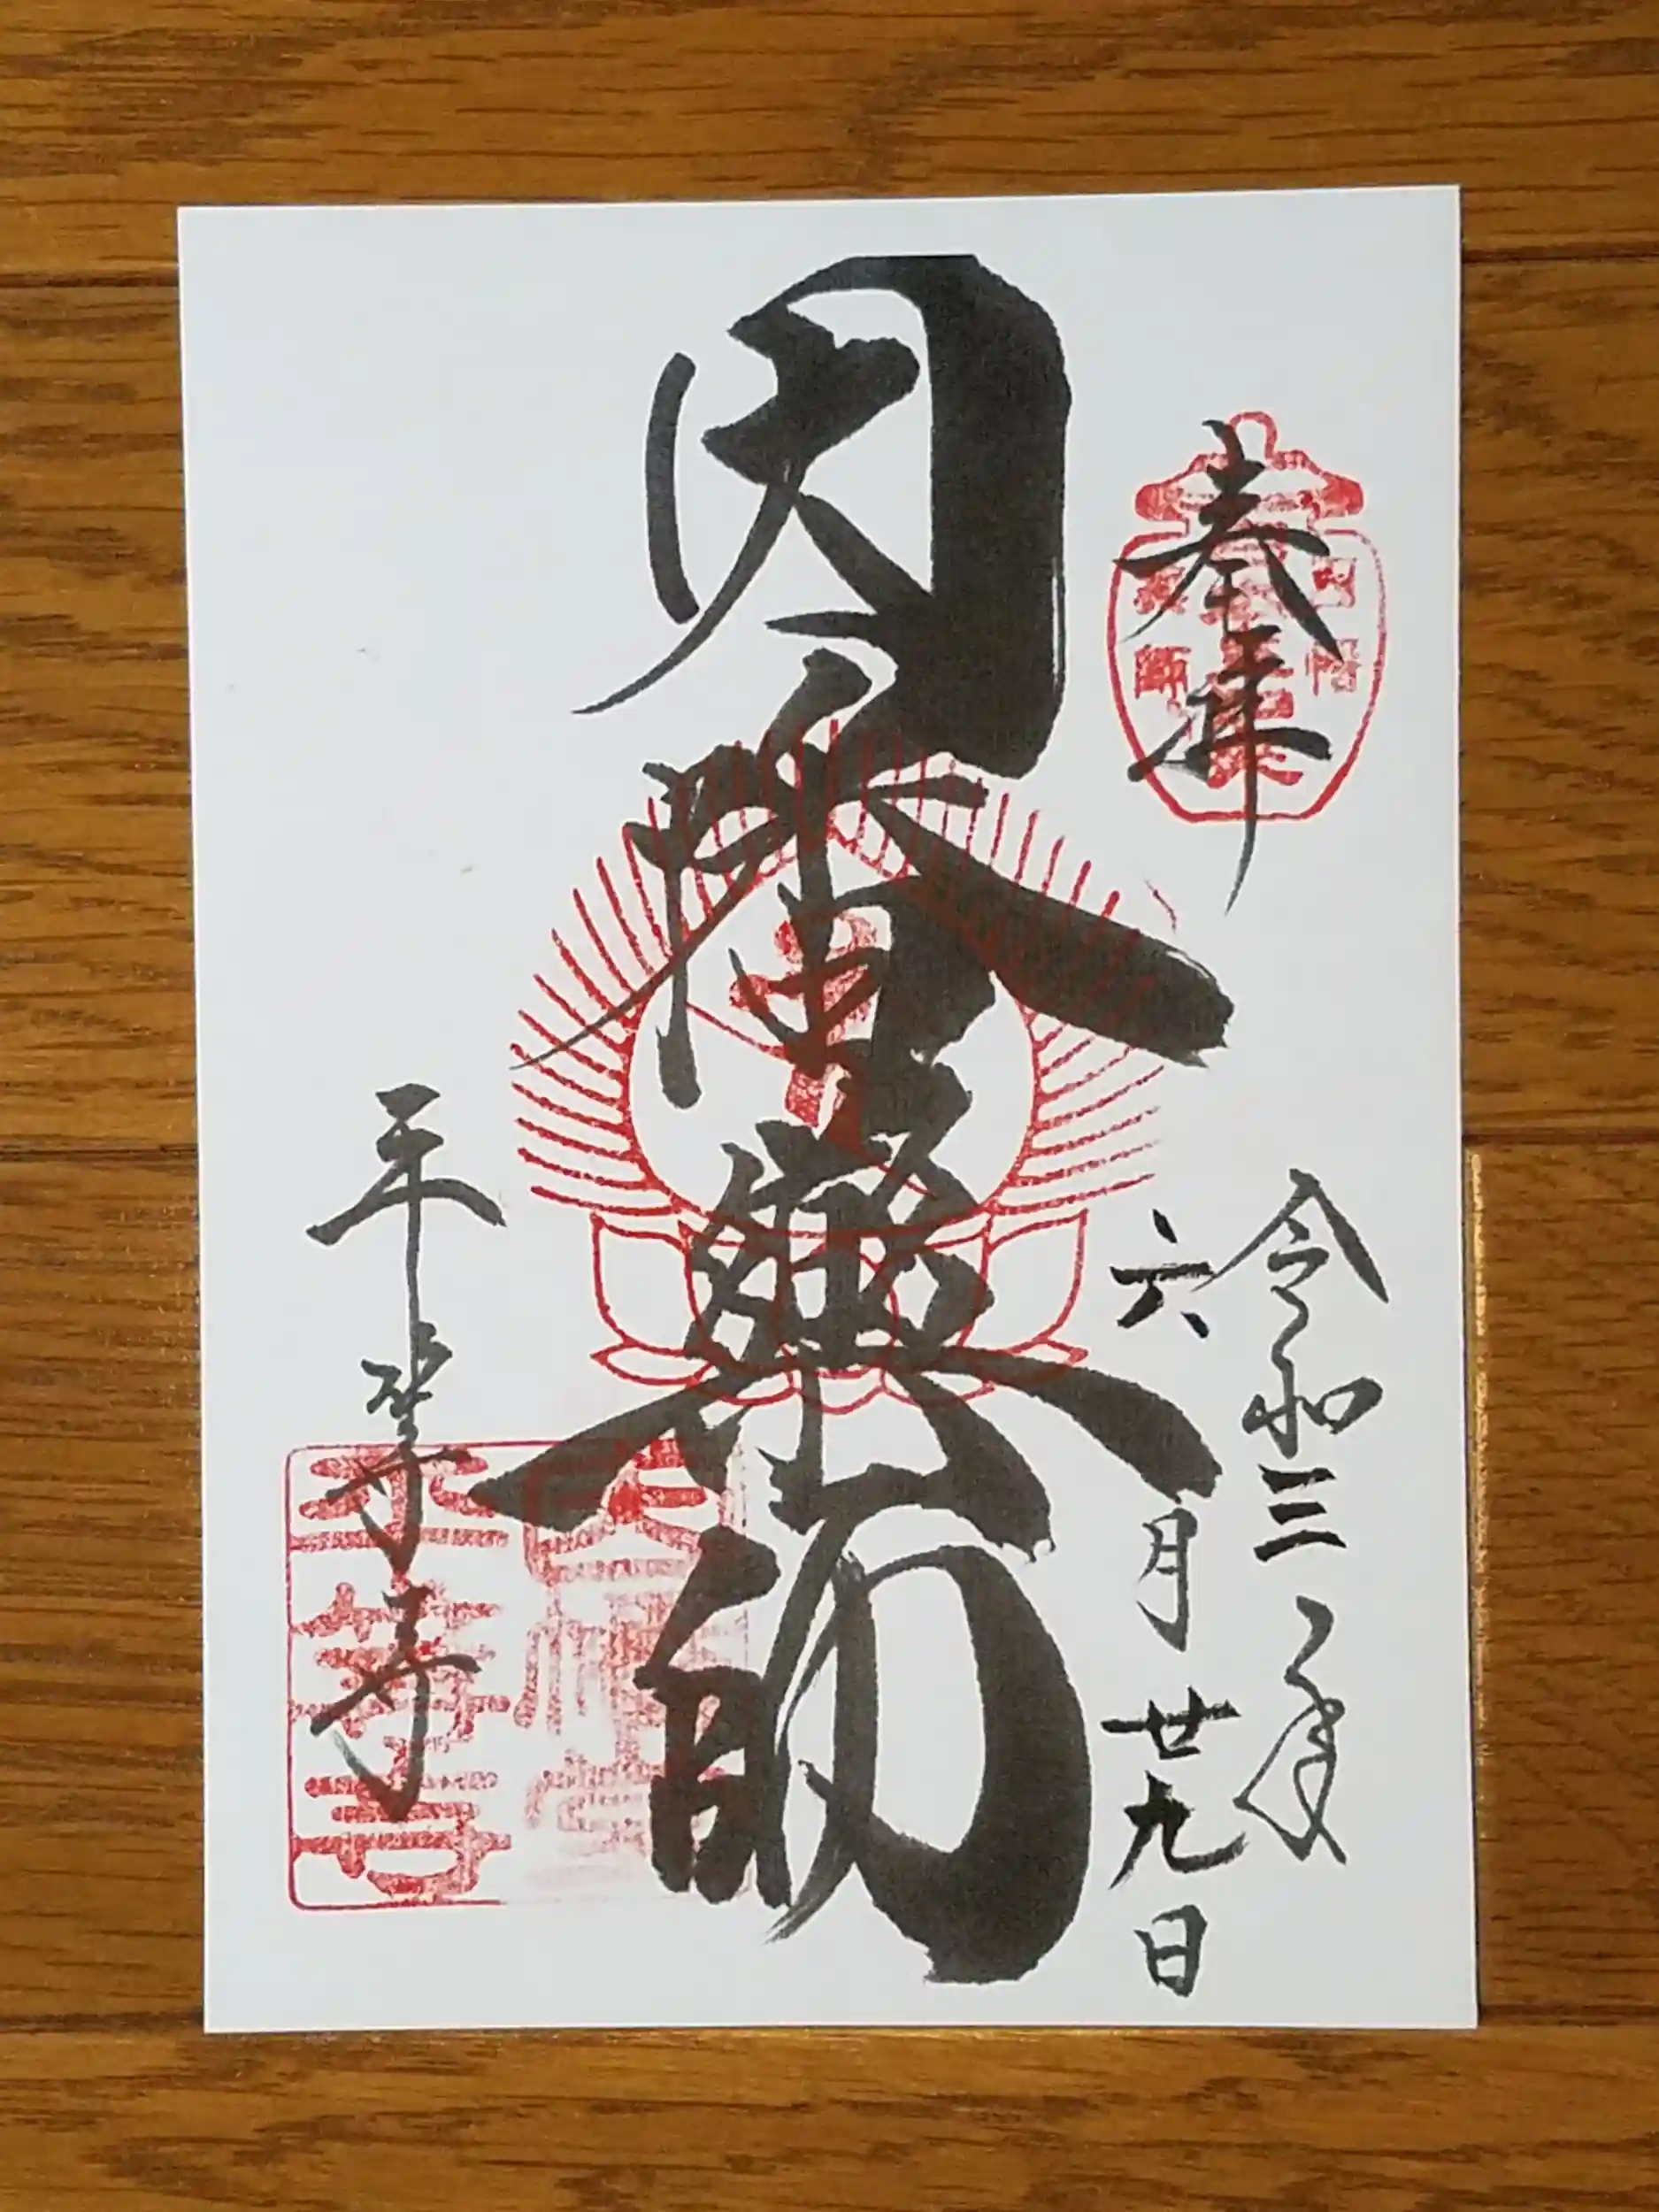 奉拝
令和三年
六月廿九日
因幡薬師
平等寺
因幡堂
平等寺